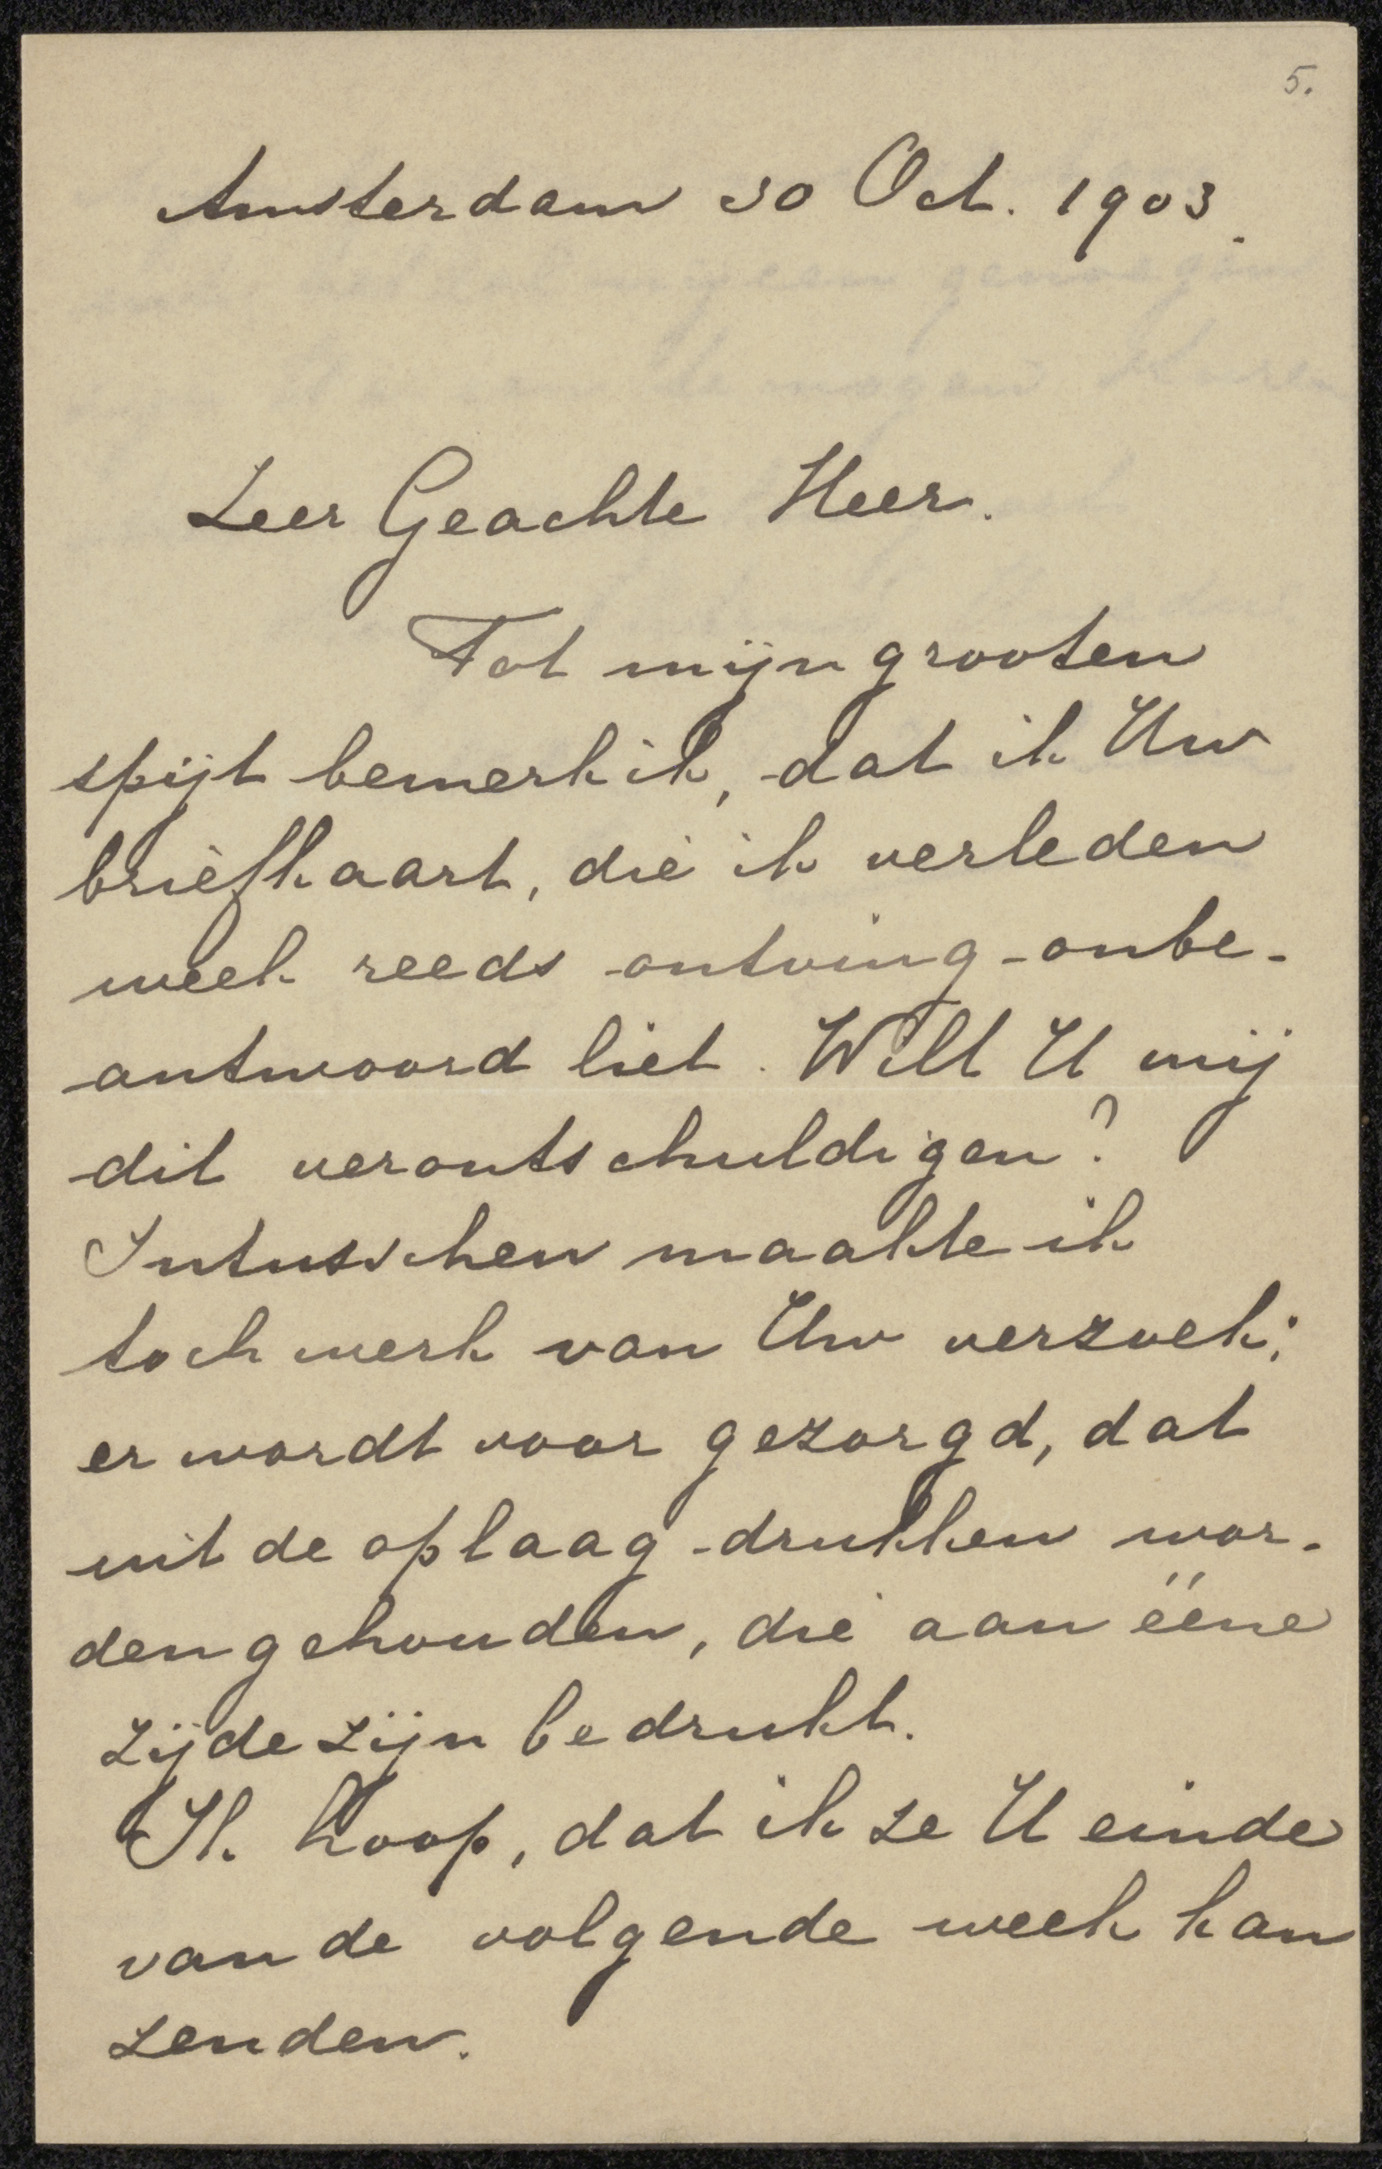 5.
Amsterdam 30 Oct. 1903.
Zeer Geachte Heer.
Tot mijn grooten
spijt bemerk ik, dat ik Uw
briefkaart, die ik verleden
week reeds ontving onbe-
antwoord liet. Wilt U mij
dit verontschuldigen?
Intusschen maakte ik
toch werk van Uw verzoek;
er wordt voor gezorgd, dat
uit de oplaag drukken wor-
den gehouden, die aan ééne
zijde zijn bedrukt.
Ik hoop, dat ik ze U einde
van de volgende week kan
zenden.